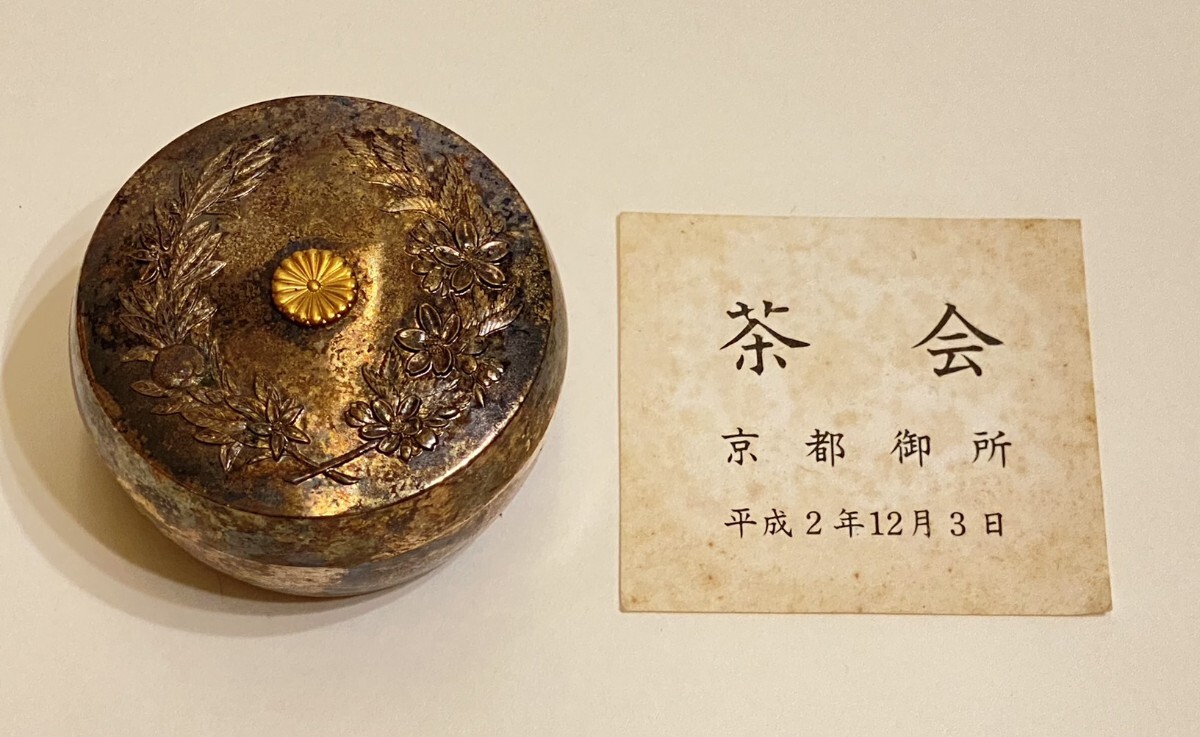 茶会
京都御所
平成2年12月3日